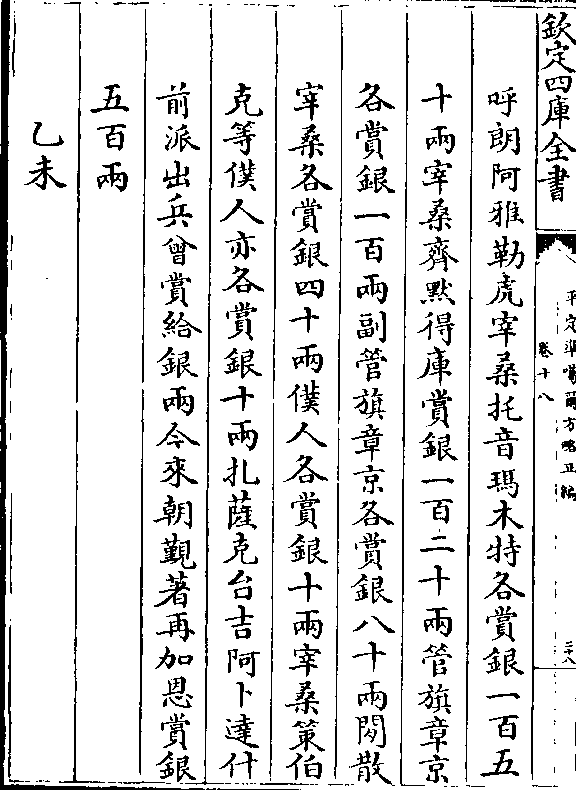 欽定四庫全書
平定準噶爾方略正編
卷十八
三十八
呼朗阿雅勒虎宰桑托音瑪木特各賞銀一百五
十兩宰桑齊默得庫賞銀一百二十兩管旗章京
各賞銀一百兩副管旗章京各賞銀八十兩閑散
宰桑各賞銀四十兩僕人各賞銀十兩宰桑策伯
克等僕人亦各賞銀十兩扎薩克台吉阿卜達什
前派出兵曾賞給銀兩今來朝覲著再加恩賞銀
五百兩
乙未